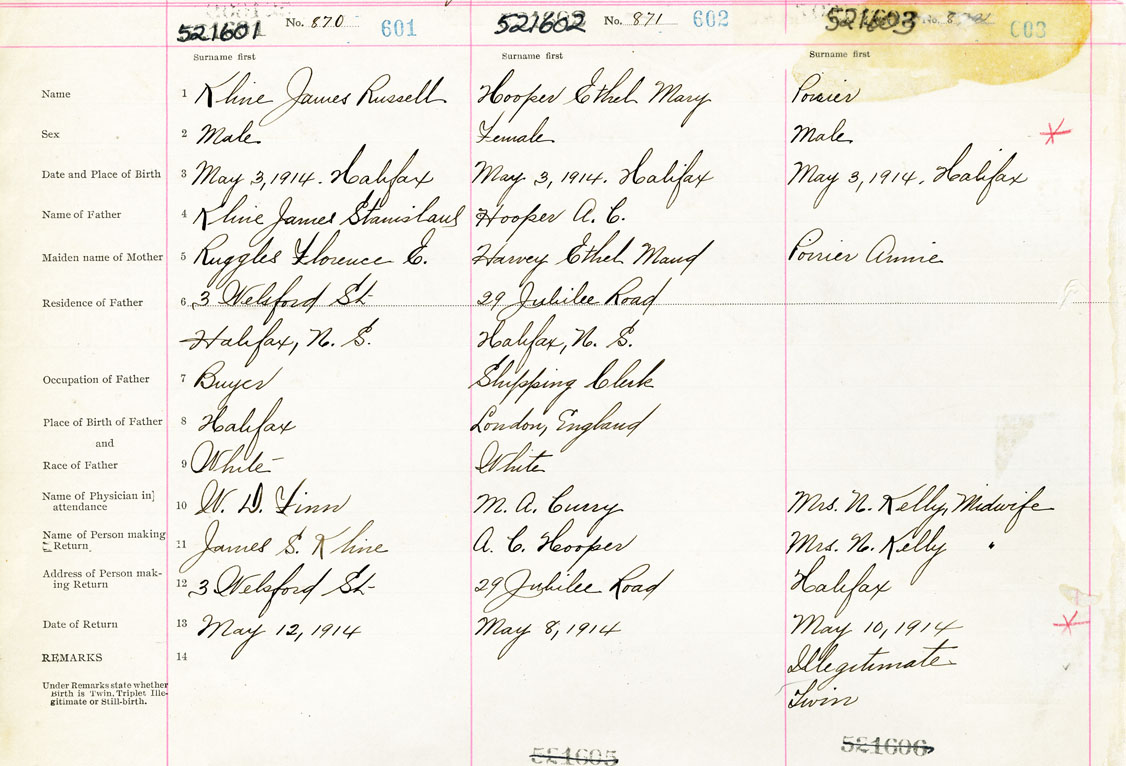 521601 No. 870 601 521602 No. 871 602 521603 No. 603
Surname first Surname first Surname first
Name 1 Kline James Russell Hooper Ethel Mary Poirier
Sex 2 Male Female Male
Date and Place of Birth 3 May 3, 1914. Halifax May 3, 1914. Halifax May 3, 1914. Halifax
Name of Father 4 Kline James Stanislaus Hooper A. C.
Maiden name of Mother 5 Ruggles Florence E. Harvey Ethel Maud Poirier Annie
Residence of Father 6 3 Welsford St. 29 Jubilee Road
Halifax, N. S. Halifax, N. S.
Occupation of Father 7 Buyer Shipping Clerk
Place of Birth of Father 8 Halifax London, England
and
Race of Father 9 White White
Name of Physician in] attendance 10 W. D. Finn M. A. Curry Mrs. N. Kelly, Midwife
Name of Person making Return 11 James S. Kline A. C. Hooper Mrs. N. Kelly "
Address of Person mak-
ing Return 12 3 Welsford St. 29 Jubilee Road Halifax
Date of Return 13 May 12, 1914 May 8, 1914 May 10, 1914
REMARKS 14 Illegitimate
Under Remarks state whether
Birth is Twin, Triplet Ille-
gitimate or Still-birth.
Twin
521605 521606